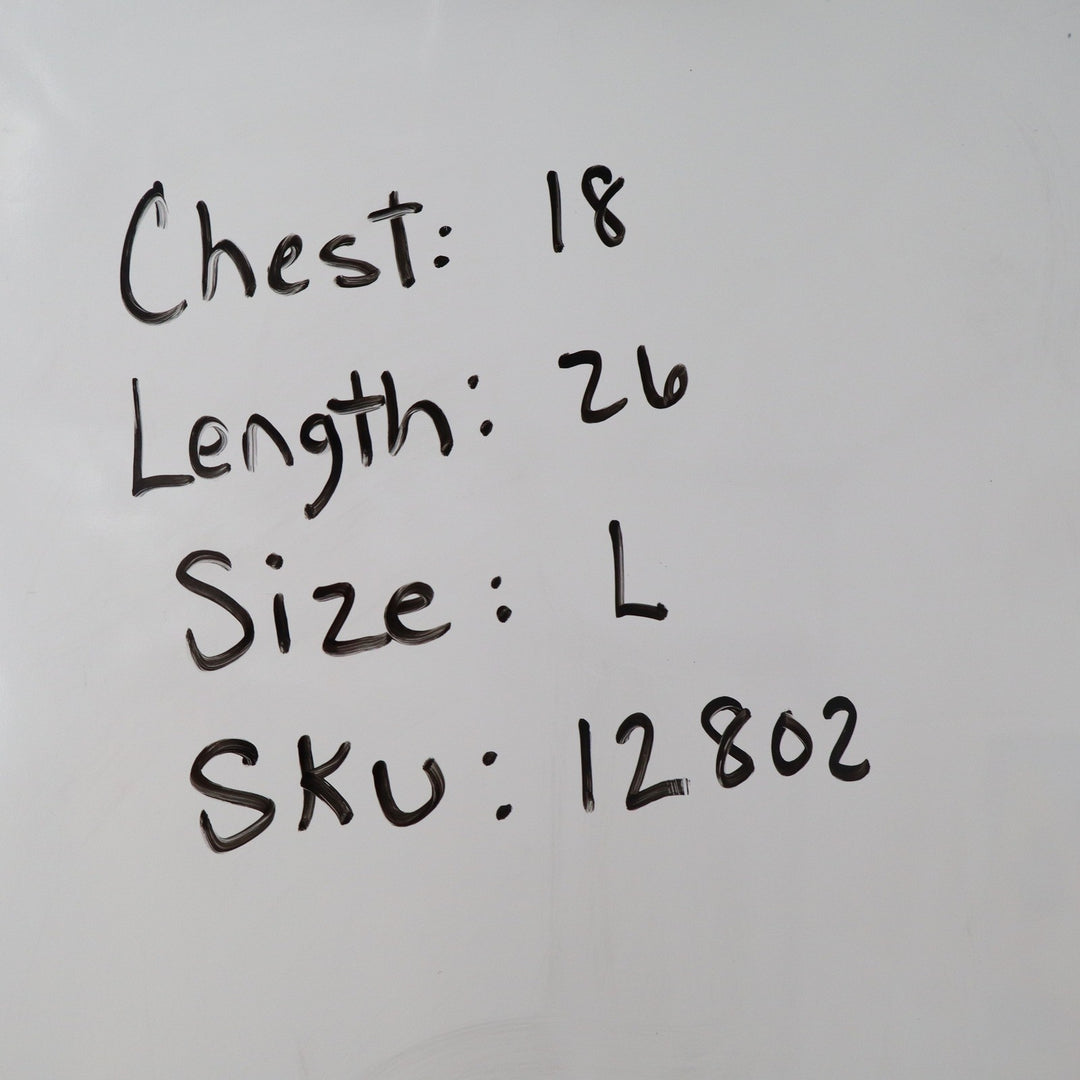 Chest: 18
Length: 26
Size: L
SKU: 12802